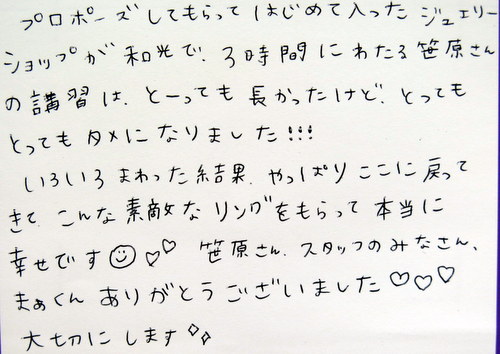 プロポーズしてもらって はじめて入った ジュエリー
ショップが 和光で、3時間にわたる 笹原さん
の講習は、とーっても 長かったけど、とっても
とっても タメに なりました!!!
いろいろ まわった 結果、やっぱり ここに 戻って
きて、こんな 素敵な リングを もらって 本当に
幸せです☺♡♡ 笹原さん、スタッフの みなさん、
まぁくん ありがとう ございました ♡♡♡
大切に します✧✧